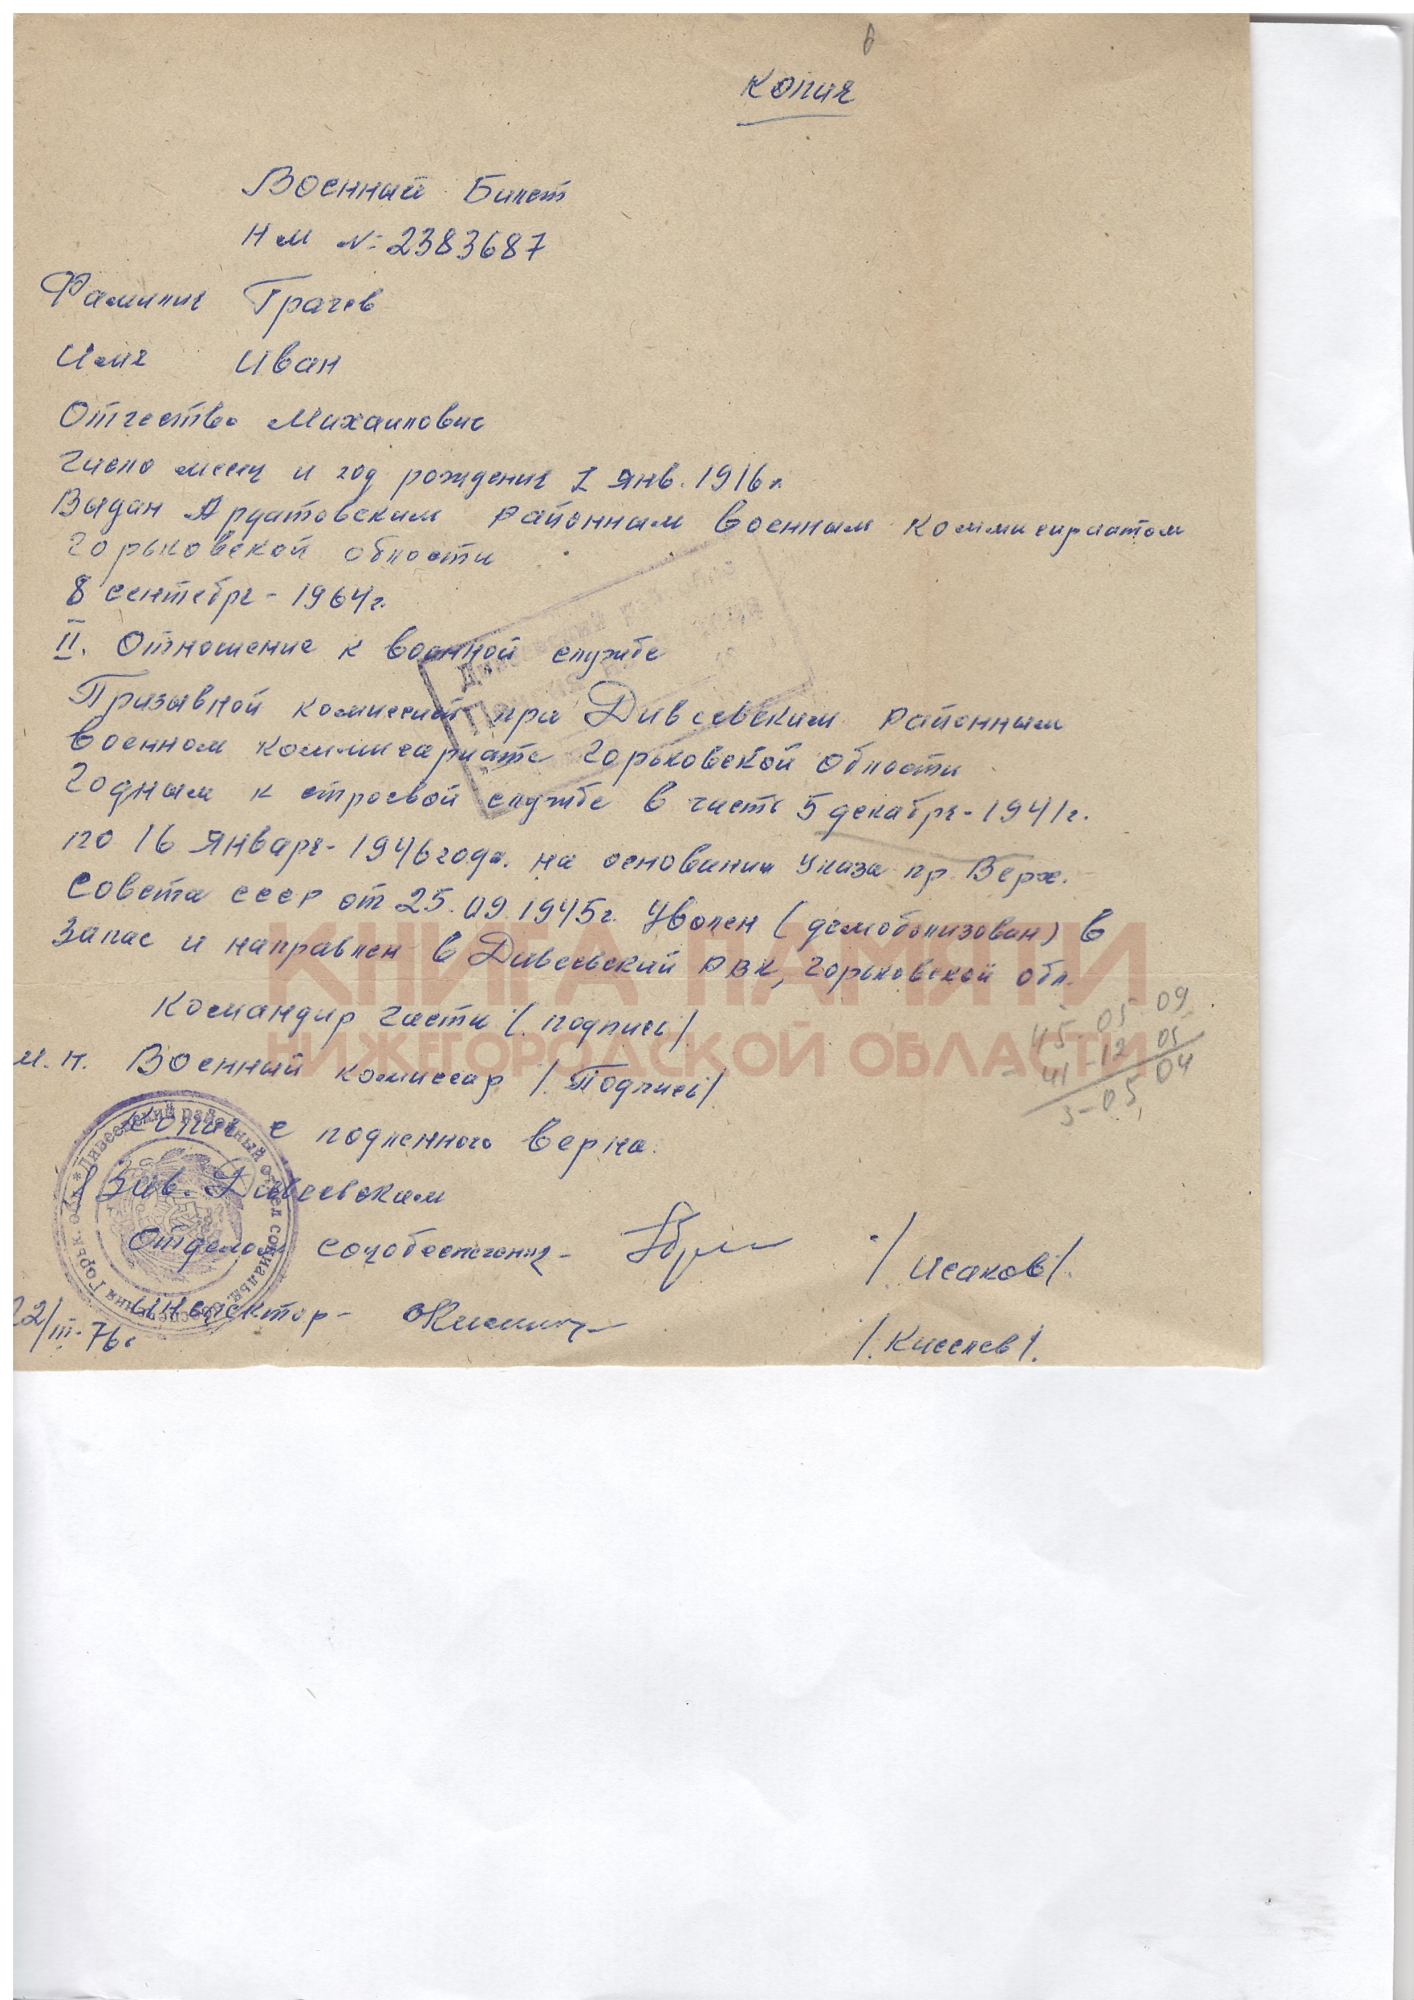 6
Копия
Военный Билет
НМ №: 2383687
Фамилия Грачев
Имя Иван
Отчество Михаилович
Число месяц и год рождения 1 янв. 1916г.
Выдан Ардатовским районным военным коммисариатом
Горьковской области
8 сентября - 1964г.
II. Отношение к военной службе
Призывной комиссией при Дивеевским районным
военном коммисариате Горьковской области
Годным к строевой службе в часть 5 декабря - 1941г.
по 16 Января - 1946 года. на основании указа пр. Верх.
Совета СССР от 25.09.1945г. Уволен (демобилизован) в
Запас и направлен в Дивеевский РВК, Горьковской обл.
КНИГА ПАМЯТИ
НИЖЕГОРОДСКОЙ ОБЛАСТИ
Командир части /. подпись/.
М.П. Военный комиссар /. Подпись/
45-05-09
41 12 05
3-05, 04
копия с подленного верна.
Зав. Дивеевским
Отделом соцобеспечения -
/ Исаков/.
Инспектор -
22/III-76г
/. Киселев/.
* Дивеевский районный отдел социальн. обеспечения Горьк. обл.